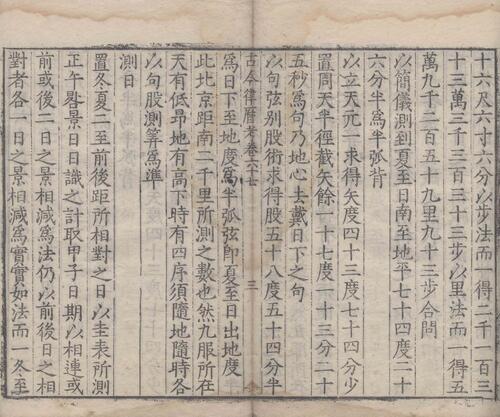 十六尺六寸六分以步法而一得二千一百三
十三萬三千三百三十三步以里法而一得五
萬九千二百五十九里九十三步合問
以簡儀測到夏至日南至地平七十四度二十
六分半爲半弧背
以立天亢一求得矢度四十三度七十四分少
置周天半徑截矢餘一十七度一十三分二十
五秒爲句乃地心去戴日下之句
以句弦别股術求得股五十八度五十四分
古今律曆考卷六十七 三
爲日下至地度爲半弧弦卽夏至日出地度
此北京距南二千里所測之數也然九服所在
天有低昂地有高下時有四序須隨地隨時各
以句股測筭爲準
測日
置冬夏二至前後距所相對之日以圭表所測
正午晷景日日識之計取甲子日期以相連或
前或後二日之景相減爲法仍以前後日之相
對者各一日之景相減爲實實如法而一冬至